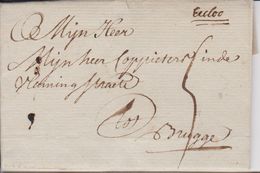 Eecloo
Mijn Heer
Mijnheer Coppieters inde
straete
tot
Brugge